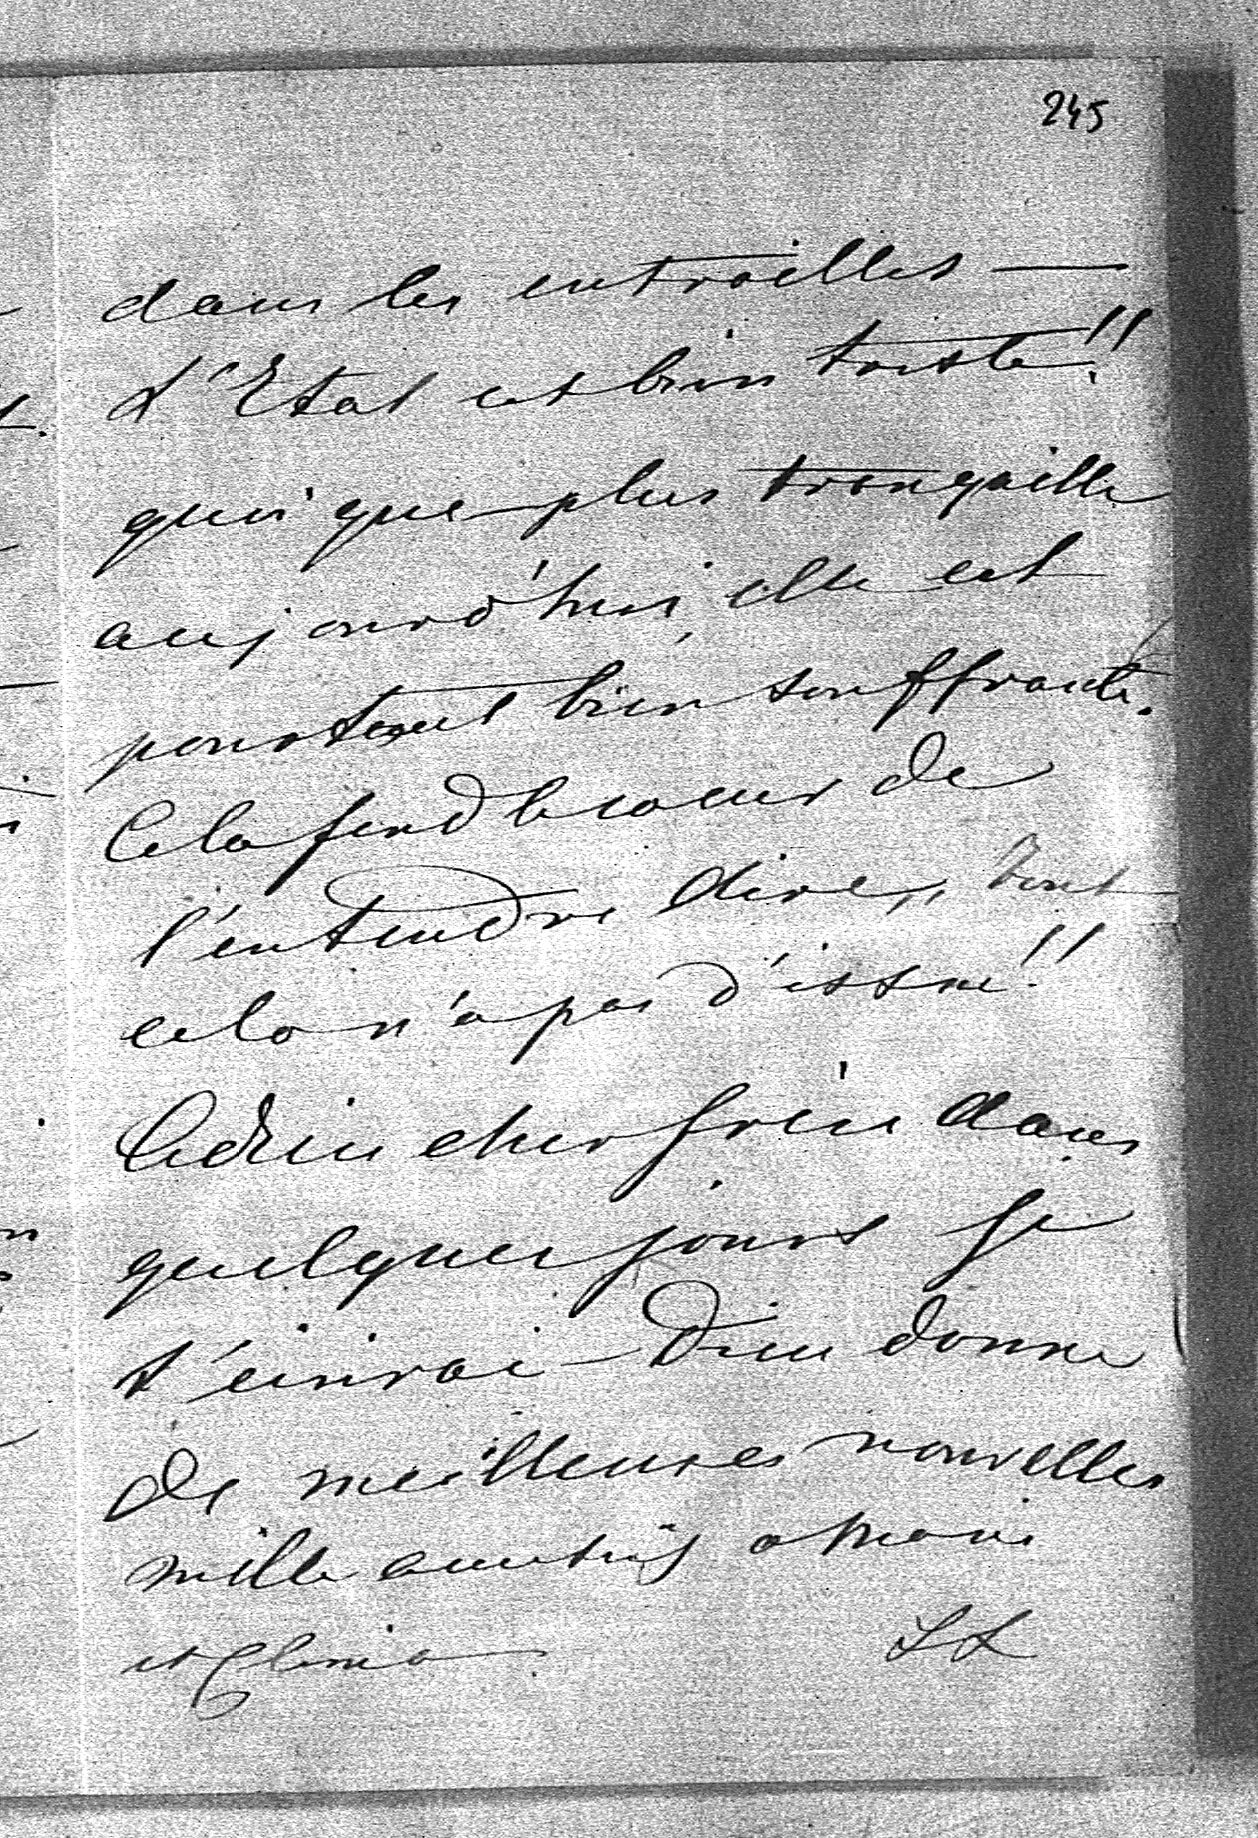 245
dans les entrailles —
L'Etat est bien triste!!
quoi que plus tranquille
aujourd'hui, elle est
pourtant bien souffrante.
Cela fend le coeur de
l'entendre dire,, tout
cela n'a pas d'issue!!
cher frère dans
quelques jours je
t'ecrirai — Dieu donne
de meilleures nouvelles
mille amitiés a Marie
et